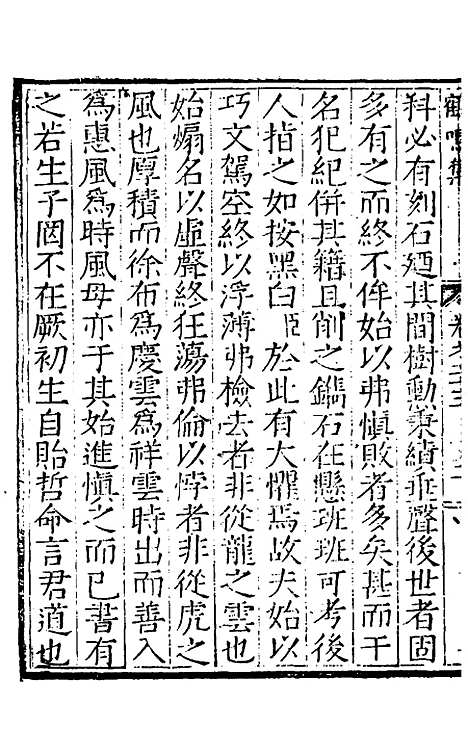 科必有刻石廼其間樹勳秉績垂聲後世者固
多有之而終不侔始以弗慎敗者多矣甚而干
名犯紀併其籍且削之鐫石在懸班班可考後
人指之如按黑白臣於此有大懼焉故夫始以
巧文駕空終以浮薄弗檢去者非從龍之雲也
始煽名以虛聲終狂蕩弗倫以悖者非從虎之
風也厚積而徐布為慶雲為祥雲時出而善入
為惠風為時風毋亦于其始進慎之而已書有
之若生子罔不在厥初生自貽哲命言君道也